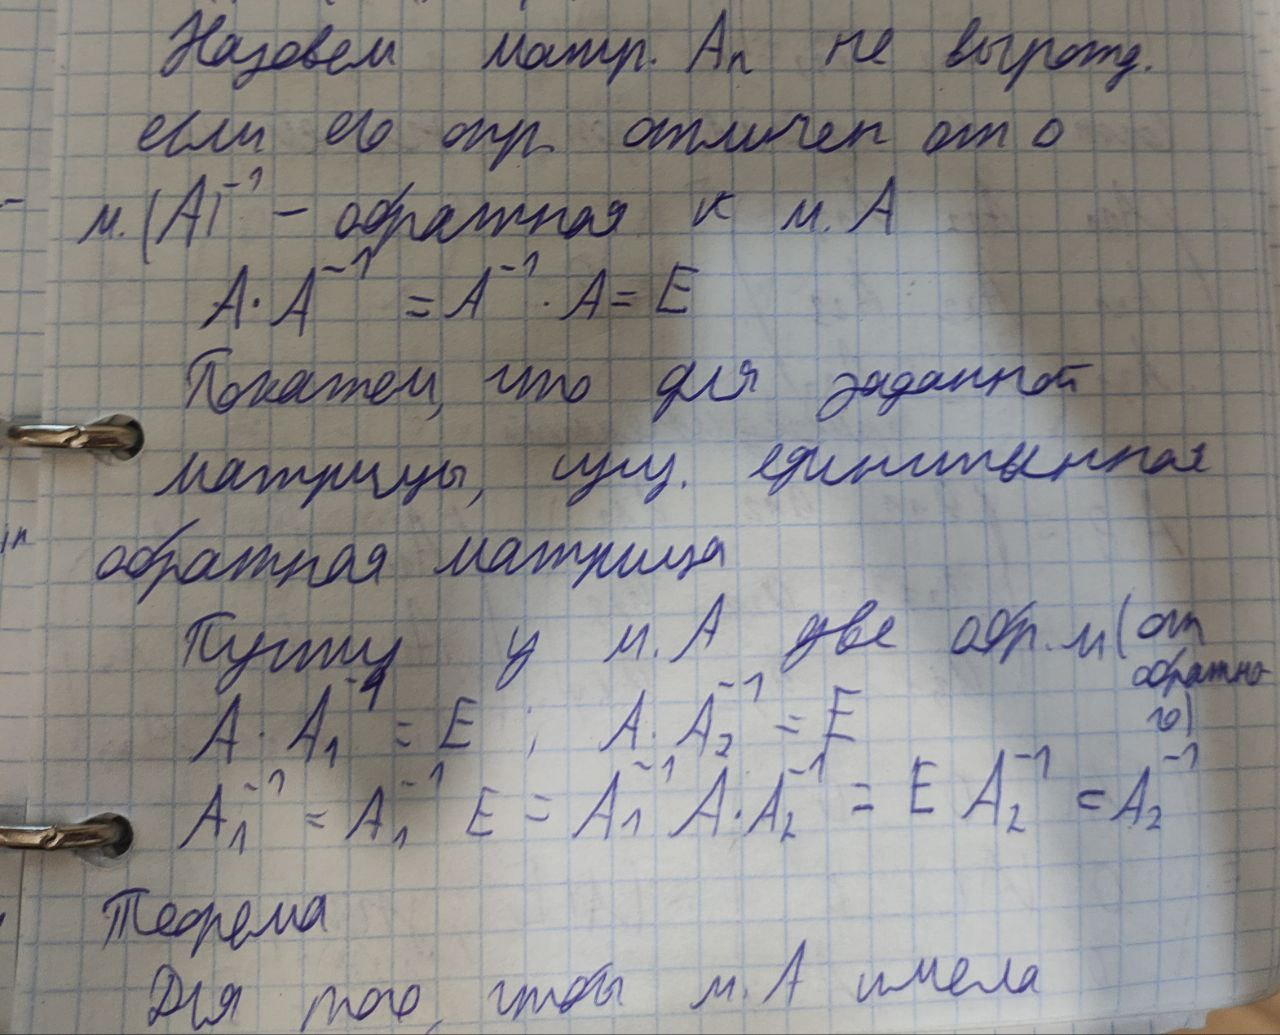 Назовем матр. Aₙ не вырожд.
если его опр. отличен от 0
м. (A)⁻¹ – обратная к м. A
A · A⁻¹ = A⁻¹ · A = E
Покажем, что для заданной
матрицы, сущ. единственная
обратная матрица
Пусть у м. A две обр. м (от обратного)
A · A₁⁻¹ = E ; A · A₂⁻¹ = E
A₁⁻¹ = A₁⁻¹ E = A₁⁻¹ A · A₂⁻¹ = E A₂⁻¹ = A₂⁻¹
Теорема
Для того, чтобы м. A имела